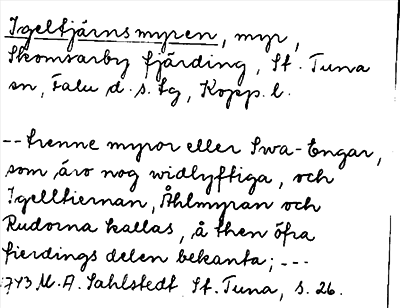 Igeltjärnsmyren, myr,
Skomsarby fjärding, St. Tuna
sn, Falu d.s. lg, Kopp. l.
-- trenne myror eller Swa-Engar,
som äro nog widlyftiga, och
Igelltiernan, Åhlmyran och
Rudorna kallas, å then öfra
fierdings delen bekanta; ---
1743 M. A. Sahlstedt St. Tuna, s. 26.